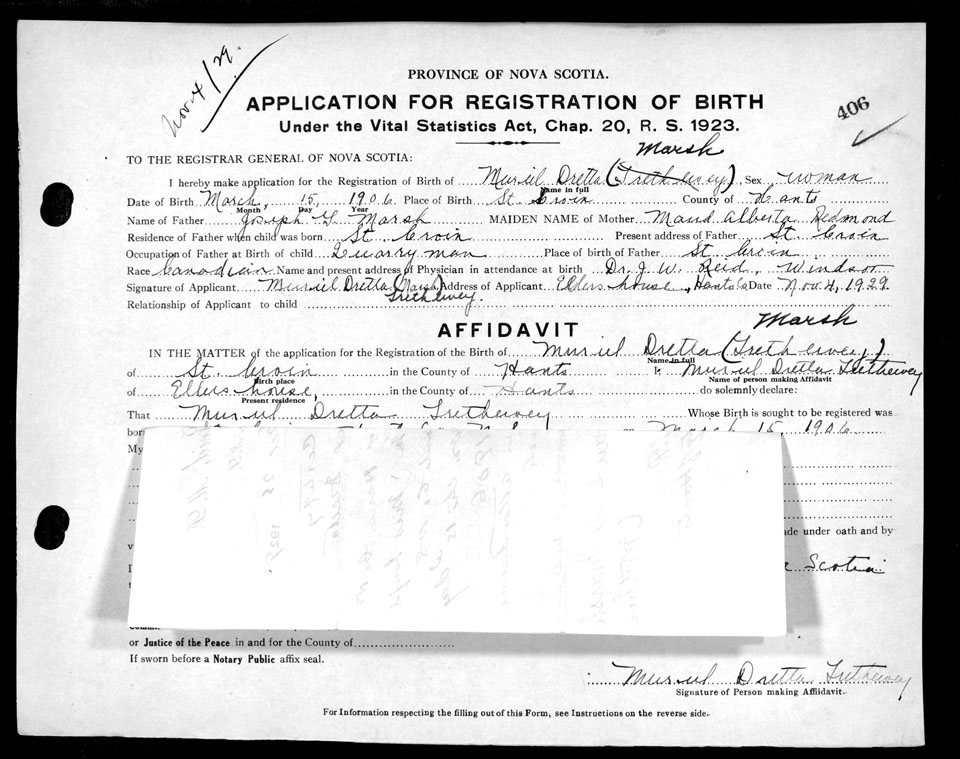 Nov 4/29.
PROVINCE OF NOVA SCOTIA.
APPLICATION FOR REGISTRATION OF BIRTH
406
Under the Vital Statistics Act, Chap. 20, R. S. 1923.
Marsh
TO THE REGISTRAR GENERAL OF NOVA SCOTIA:
I hereby make application for the Registration of Birth of Muriel Dretta (Trethewey) Sex woman
Name in full
Date of Birth March, 15, 1906. Place of Birth St Croix County of Hants
Month Day Year
Name of Father Joseph Marsh MAIDEN NAME of Mother Maud Alberta Redmond
Residence of Father when child was born St Croix Present address of Father St Croix
Occupation of Father at Birth of child Quarry man Place of birth of Father St Croix
Race Canadian Name and present address of Physician in attendance at birth Dr. J. W. Reid, Windsor
Signature of Applicant Muriel Dretta (Marsh) Address of Applicant Elders house, Hants Co Date Nov. 4, 1929.
Trethewey.
Relationship of Applicant to child
AFFIDAVIT
Marsh
IN THE MATTER of the application for the Registration of the Birth of Muriel Dretta (Trethewey)
Name in full
of St Croix in the County of Hants I, Muriel Dretta Trethewey
Birth place Name of person making Affidavit
of Elders house, in the County of Hants do solemnly declare:
Present residence
That Muriel Dretta Trethewey Whose Birth is sought to be registered was
bor on March 15, 1906.
My
ade under oath and by
Scotia
or Justice of the Peace in and for the County of
If sworn before a Notary Public affix seal.
Muriel Dretta Trethewey
Signature of Person making Affidavit.
For Information respecting the filling out of this Form, see Instructions on the reverse side.